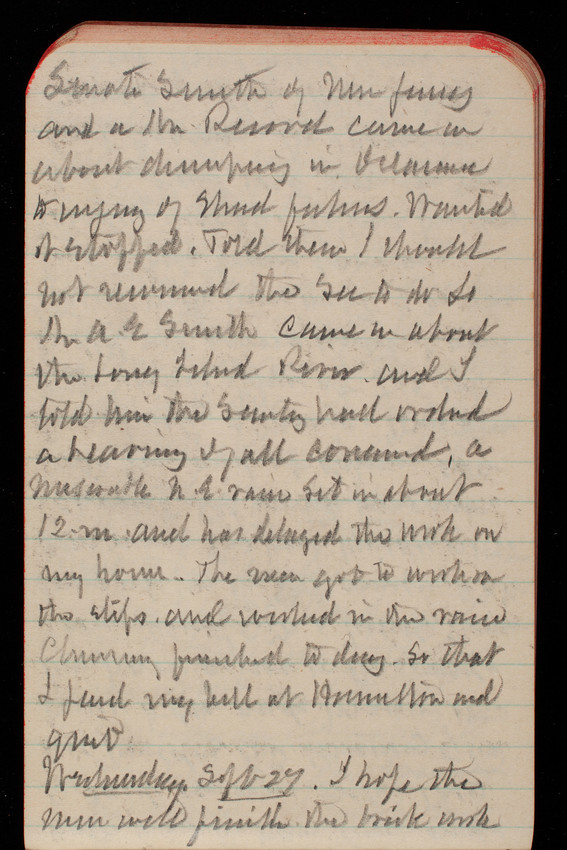 Senator Smith of New Jersey
and a Mr Record came in
about dumping in Delaware
to injury of Shad fishers. Wanted
it stopped. Told them I should
not recommend the Sec to do so
Mr A E Smith came in about
the Long Island River and I
told him the Secretary had ordered
a hearing of all concerned, a
Miserable N. E. rain set in about
12 m. and has delayed the work on
my house. The men got to work on
the steps and worked in the rain
Chimney finished to day. So that
I paid my bill at Hamilton and
quit
Wednesday Sept 27. I hope the
men will finish the brick work